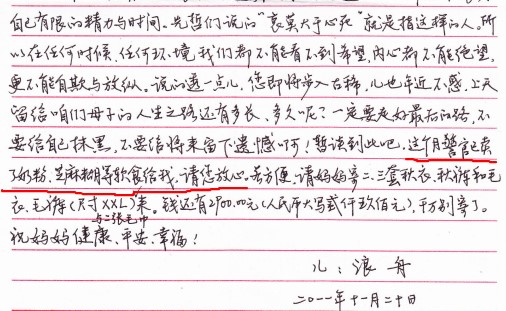 自己有限的精力与时间。先哲们说的“哀莫大于心死”就是指这样的人。所
以在任何时候、任何环境我们都不能看不到希望,内心都不能绝望,
更不能自欺与放纵。说的透一点儿,您即将步入古稀,儿也年近不惑,上天
留给咱们母子的人生之路还有多长、多久呢?一定要走好最后的路,不
要给自己抹黑,不要给将来留下遗憾啊!暂谈到此吧,这个月警官已卖
了奶粉、芝麻糊等软食给我,请您放心。若方便,请妈妈寄二、三套秋衣、秋裤和毛
衣、毛裤(尺寸XXL)来。钱还有2900.00元(人民币大写贰仟玖佰元),千万别寄了。
与二张毛巾
祝妈妈健康、平安、幸福!
儿:浪舟
二〇一一年十一月二十日